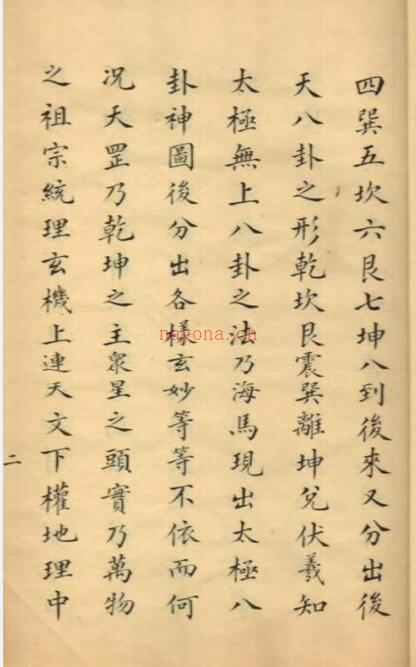 四巽五坎六艮七坤八到後來又分出後
天八卦之形乾坎艮震巽離坤兌伏羲知
太極無上八卦之法乃海馬現出太極八
卦神圖後分出各樣玄妙等等不依而何
況天罡乃乾坤之主衆星之頭實乃萬物
之祖宗統理玄機上連天文下權地理中
二
nayona.cn